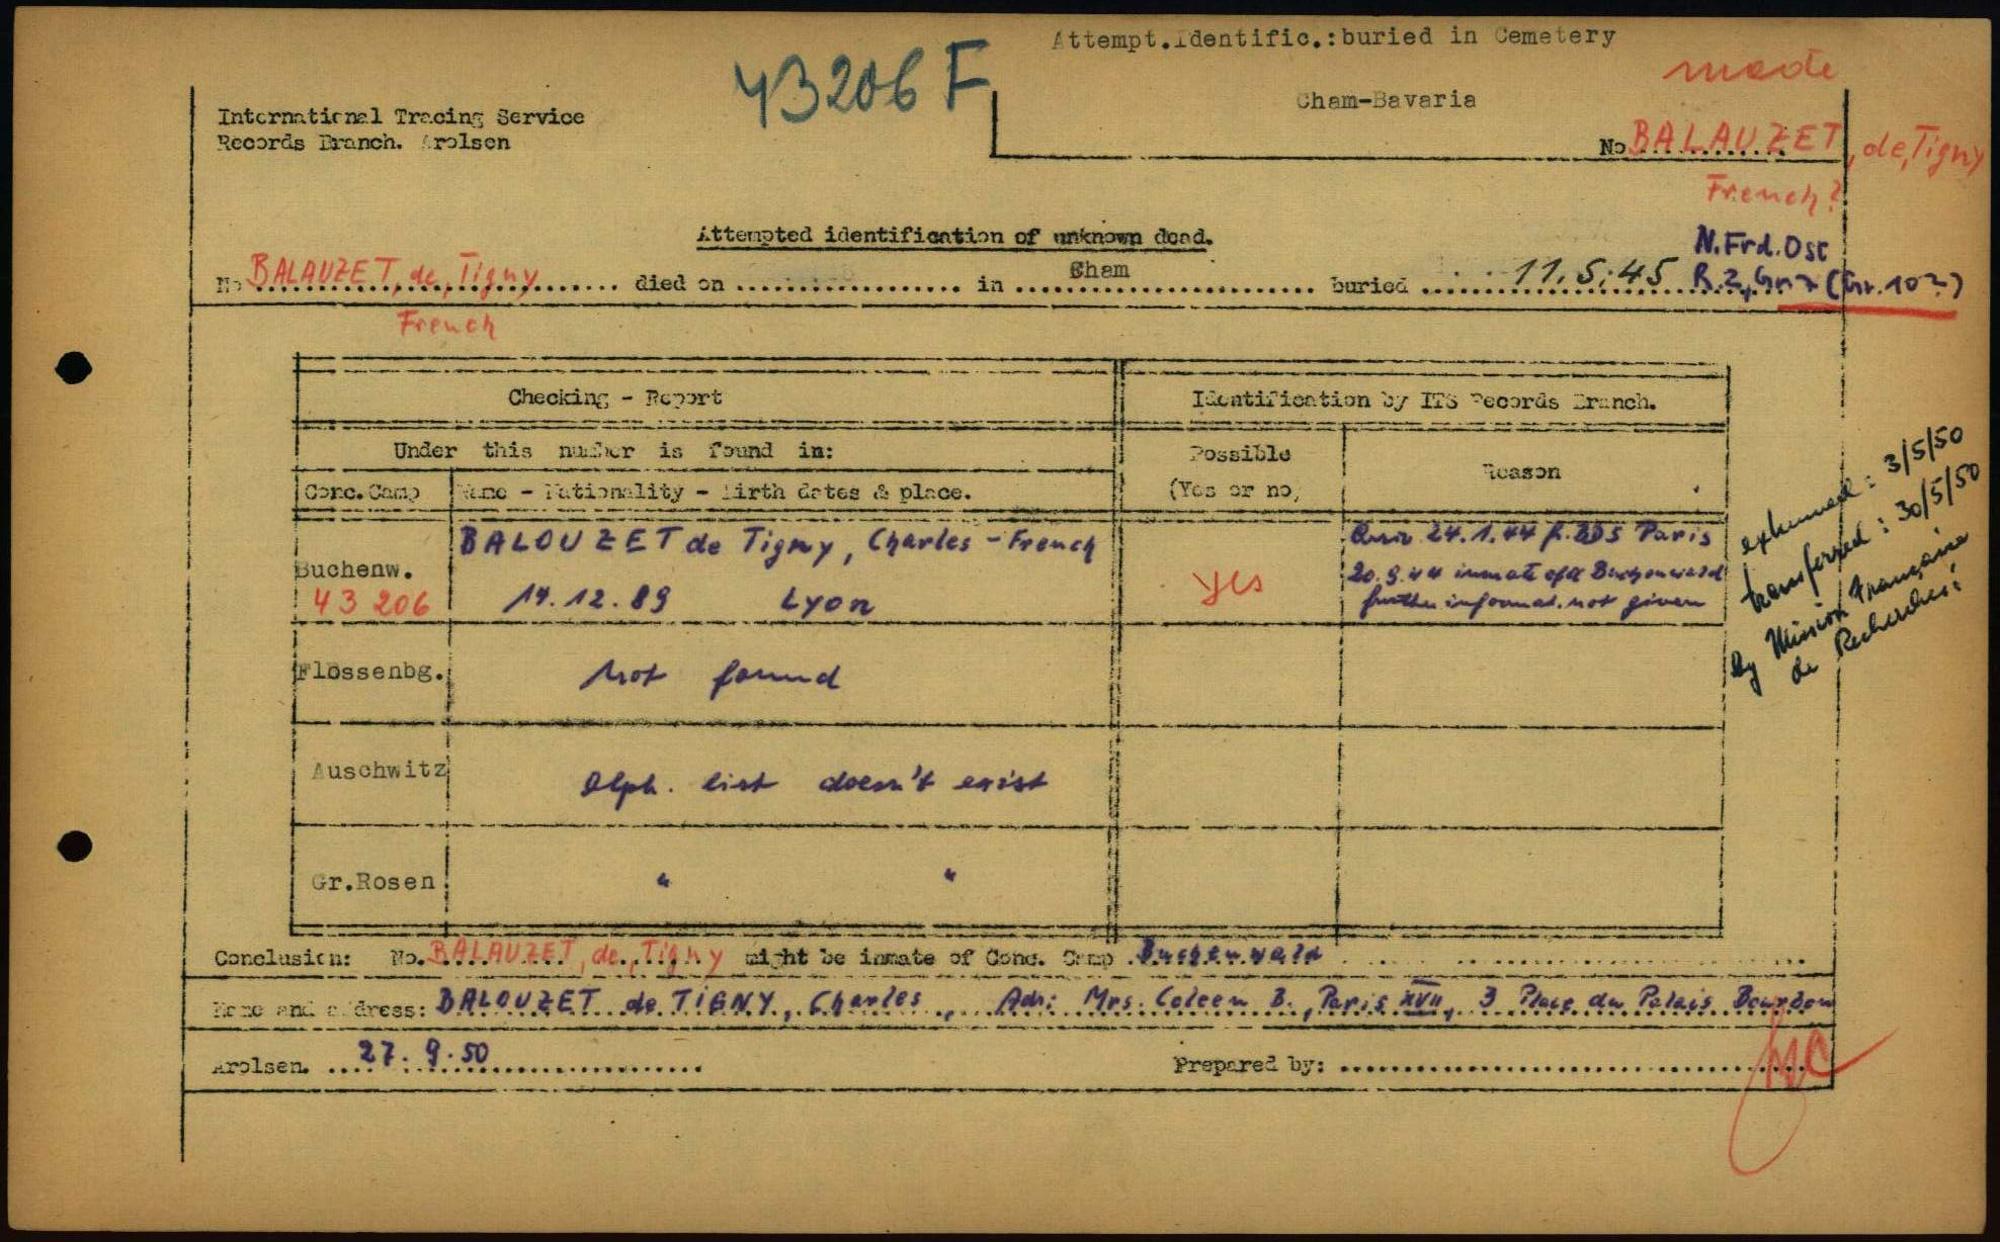 Attempt.Identific.:buried in Cemetery
43206 F
made
Cham-Bavaria
International Tracing Service
Records Branch. Arolsen
No BALAUZET, de, Tigny
French?
Attempted identification of unknown dead.
N.Frd.Ost
No BALAUZET, de, Tigny died on in Cham buried 11.5.45 R.2, (Gr.102)
French
Checking - Report
Identification by ITS Records Branch.
Under this number is found in:
Possible
(Yes or no)
Reason
Conc.Camp
Name - Nationality - Birth dates & place.
exhumed: 3/5/50
transferred: 30/5/50
by Mission Française
de Recherches!
Buchenw.
43 206
BALOUZET de Tigny, Charles - French
14.12.89 Lyon
yes
24.1.44 f. BDS Paris
20.9.44 inmate of Buchenwald
further informat. not given
Flossenbg.
Not found
Auschwitz
Alph. list doesn't exist
Gr.Rosen
" "
Conclusion: No. BALAUZET, de, Tigny might be inmate of Conc. Camp Buchenwald
Name and address: BALOUZET de TIGNY, Charles, Adr: Mrs. Coleen B., Paris XVII, 3 Place du Palais Bourbon
Arolsen. 27.9.50
Prepared by: